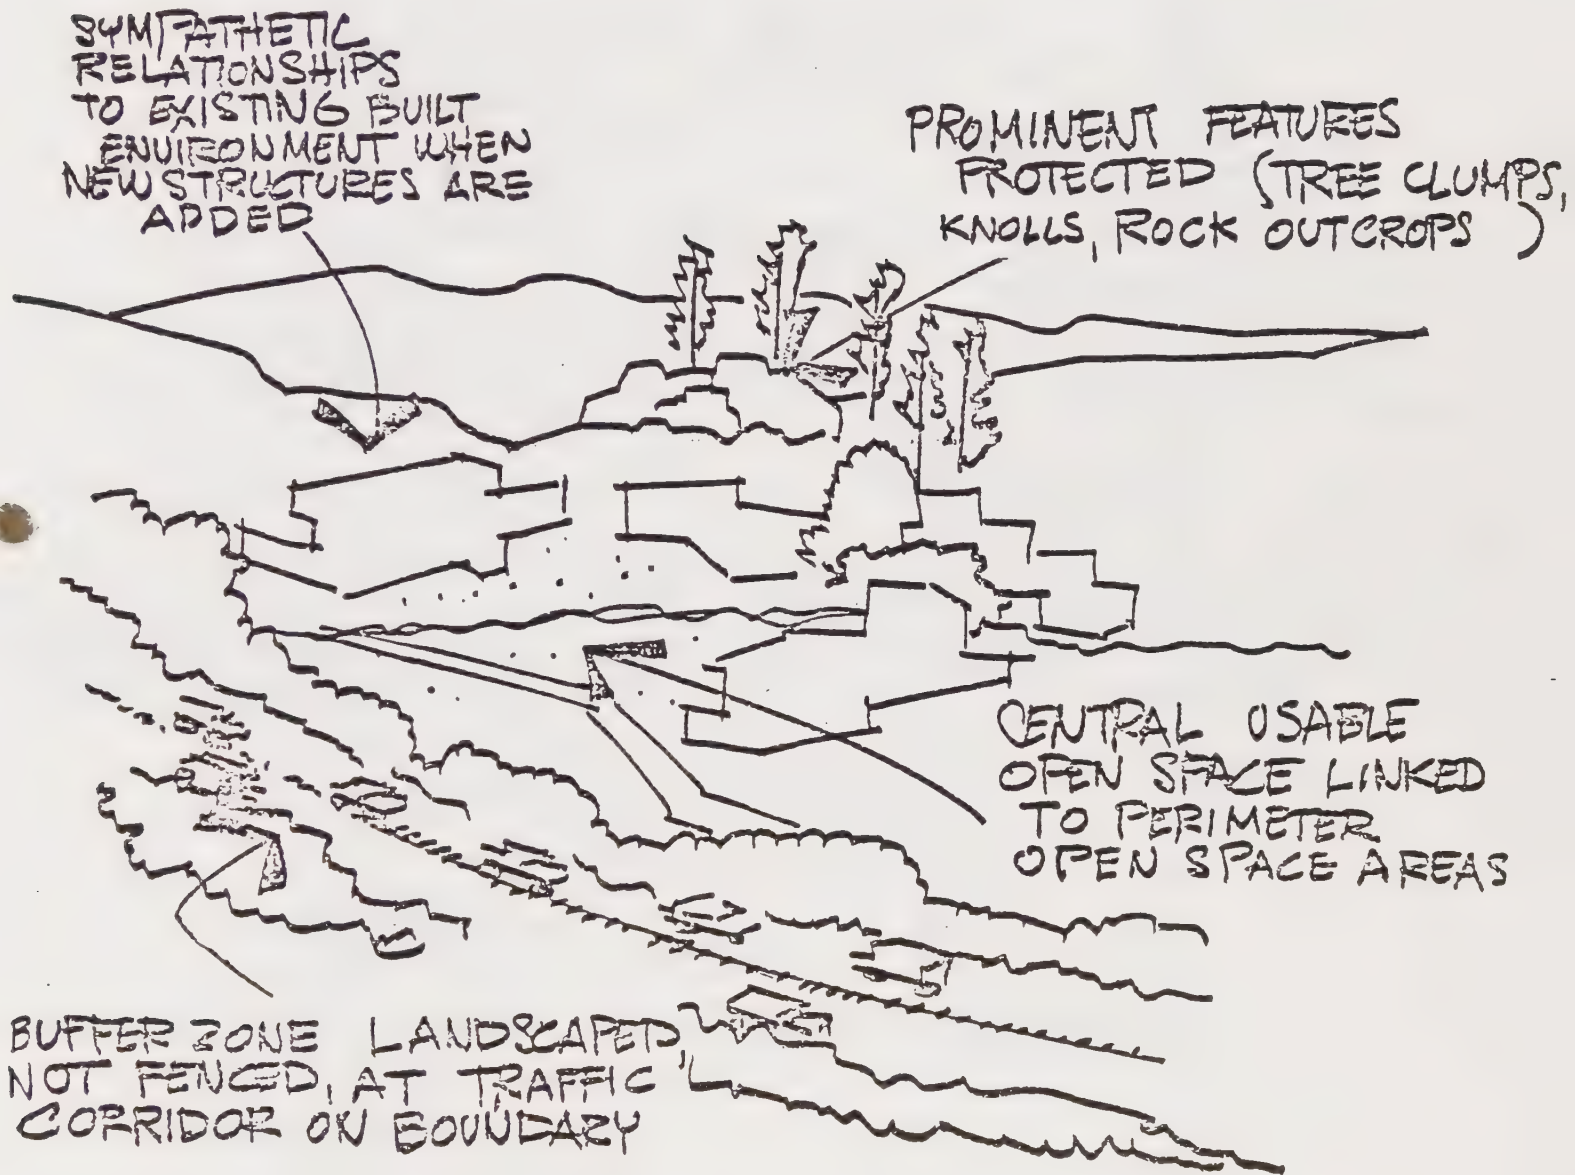 SYMPATHETIC
RELATIONSHIPS
TO EXISTING BUILT
ENVIRONMENT WHEN
NEW STRUCTURES ARE
ADDED
PROMINENT FEATURES
PROTECTED (TREE CLUMPS,
KNOLLS, ROCK OUTCROPS)
CENTRAL USABLE
OPEN SPACE LINKED
TO PERIMETER
OPEN SPACE AREAS
BUFFER ZONE LANDSCAPED,
NOT FENCED, AT TRAFFIC
CORRIDOR ON BOUNDARY